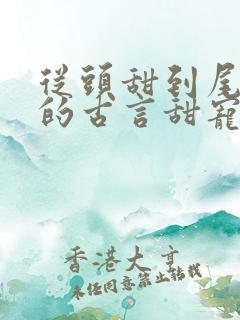 從頭甜到尾
的古言甜寵
香港大亨
未经同意禁止转载